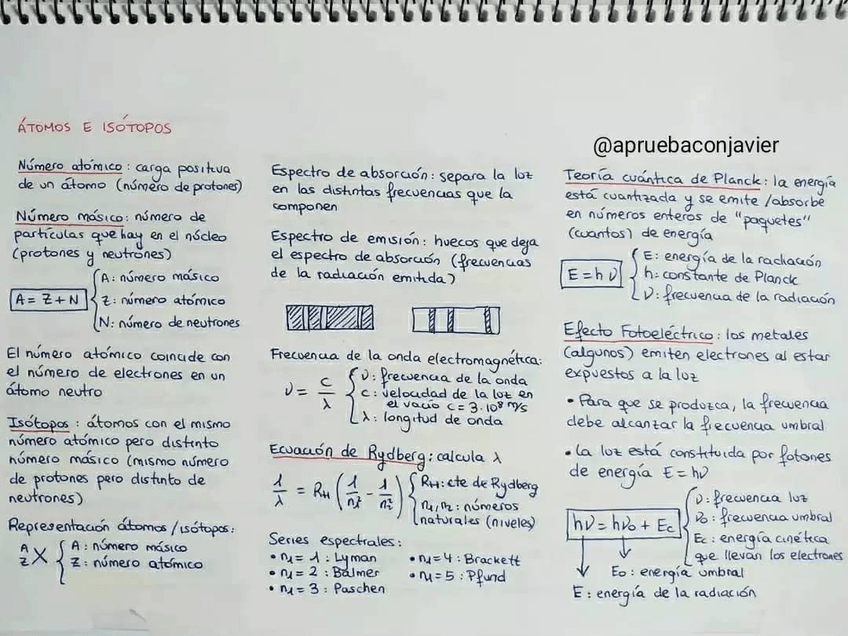 ÁTOMOS E ISÓTOPOS
Número atómico: carga positiva
de un átomo (número de protones)
Número másico: número de
partículas que hay en el núcleo
(protones y neutrones)
A = Z + N
A: número másico
Z: número atómico
N: número de neutrones
El número atómico coincide con
el número de electrones en un
átomo neutro
Isótopos: átomos con el mismo
número atómico pero distinto
número másico (mismo número
de protones pero distinto de
neutrones)
Representación átomos/isótopos:
A
Z X
A: número másico
Z: número atómico
Espectro de absorción: separa la luz
en las distintas frecuencias que la
componen
Espectro de emisión: huecos que deja
el espectro de absorción (frecuencias
de la radiación emitida)
Frecuencia de la onda electromagnética:
ν = c/λ
ν: frecuencia de la onda
c: velocidad de la luz en
el vacío c = 3·10⁸ m/s
λ: longitud de onda
Ecuación de Rydberg: calcula λ
1/λ = RH (1/n₁² - 1/n₂²)
RH: cte de Rydberg
n₁, n₂: números
naturales (niveles)
Series espectrales:
• n₁ = 1: Lyman
• n₁ = 2: Balmer
• n₁ = 3: Paschen
• n₁ = 4: Brackett
• n₁ = 5: Pfund
@apruebaconjavier
Teoría cuántica de Planck: la energía
está cuantizada y se emite/absorbe
en números enteros de "paquetes"
(cuantos) de energía
E = hν
E: energía de la radiación
h: constante de Planck
ν: frecuencia de la radiación
Efecto Fotoeléctrico: los metales
(algunos) emiten electrones al estar
expuestos a la luz
• Para que se produzca, la frecuencia
debe alcanzar la frecuencia umbral
• La luz está constituida por fotones
de energía E = hν
hν = hν₀ + Ec
ν: frecuencia luz
ν₀: frecuencia umbral
Ec: energía cinética
que llevan los electrones
E₀: energía umbral
E: energía de la radiación